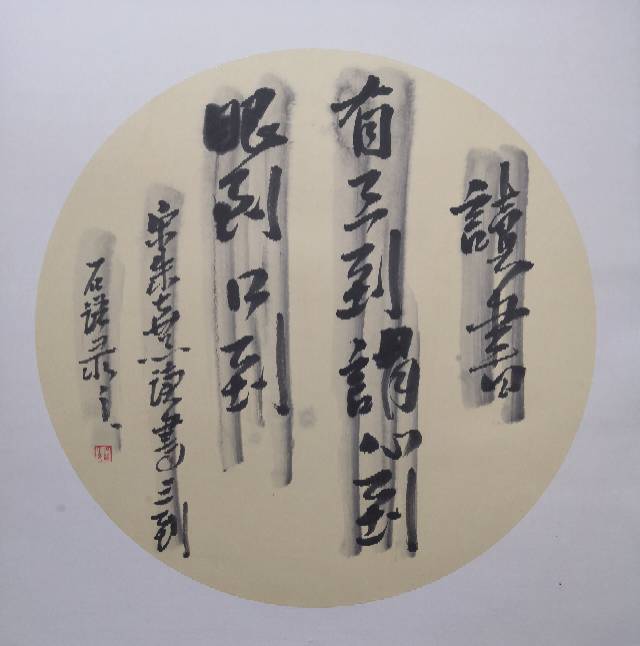 讀書
有三到謂心到
眼到口到
宋朱熹读書三到
石语录之